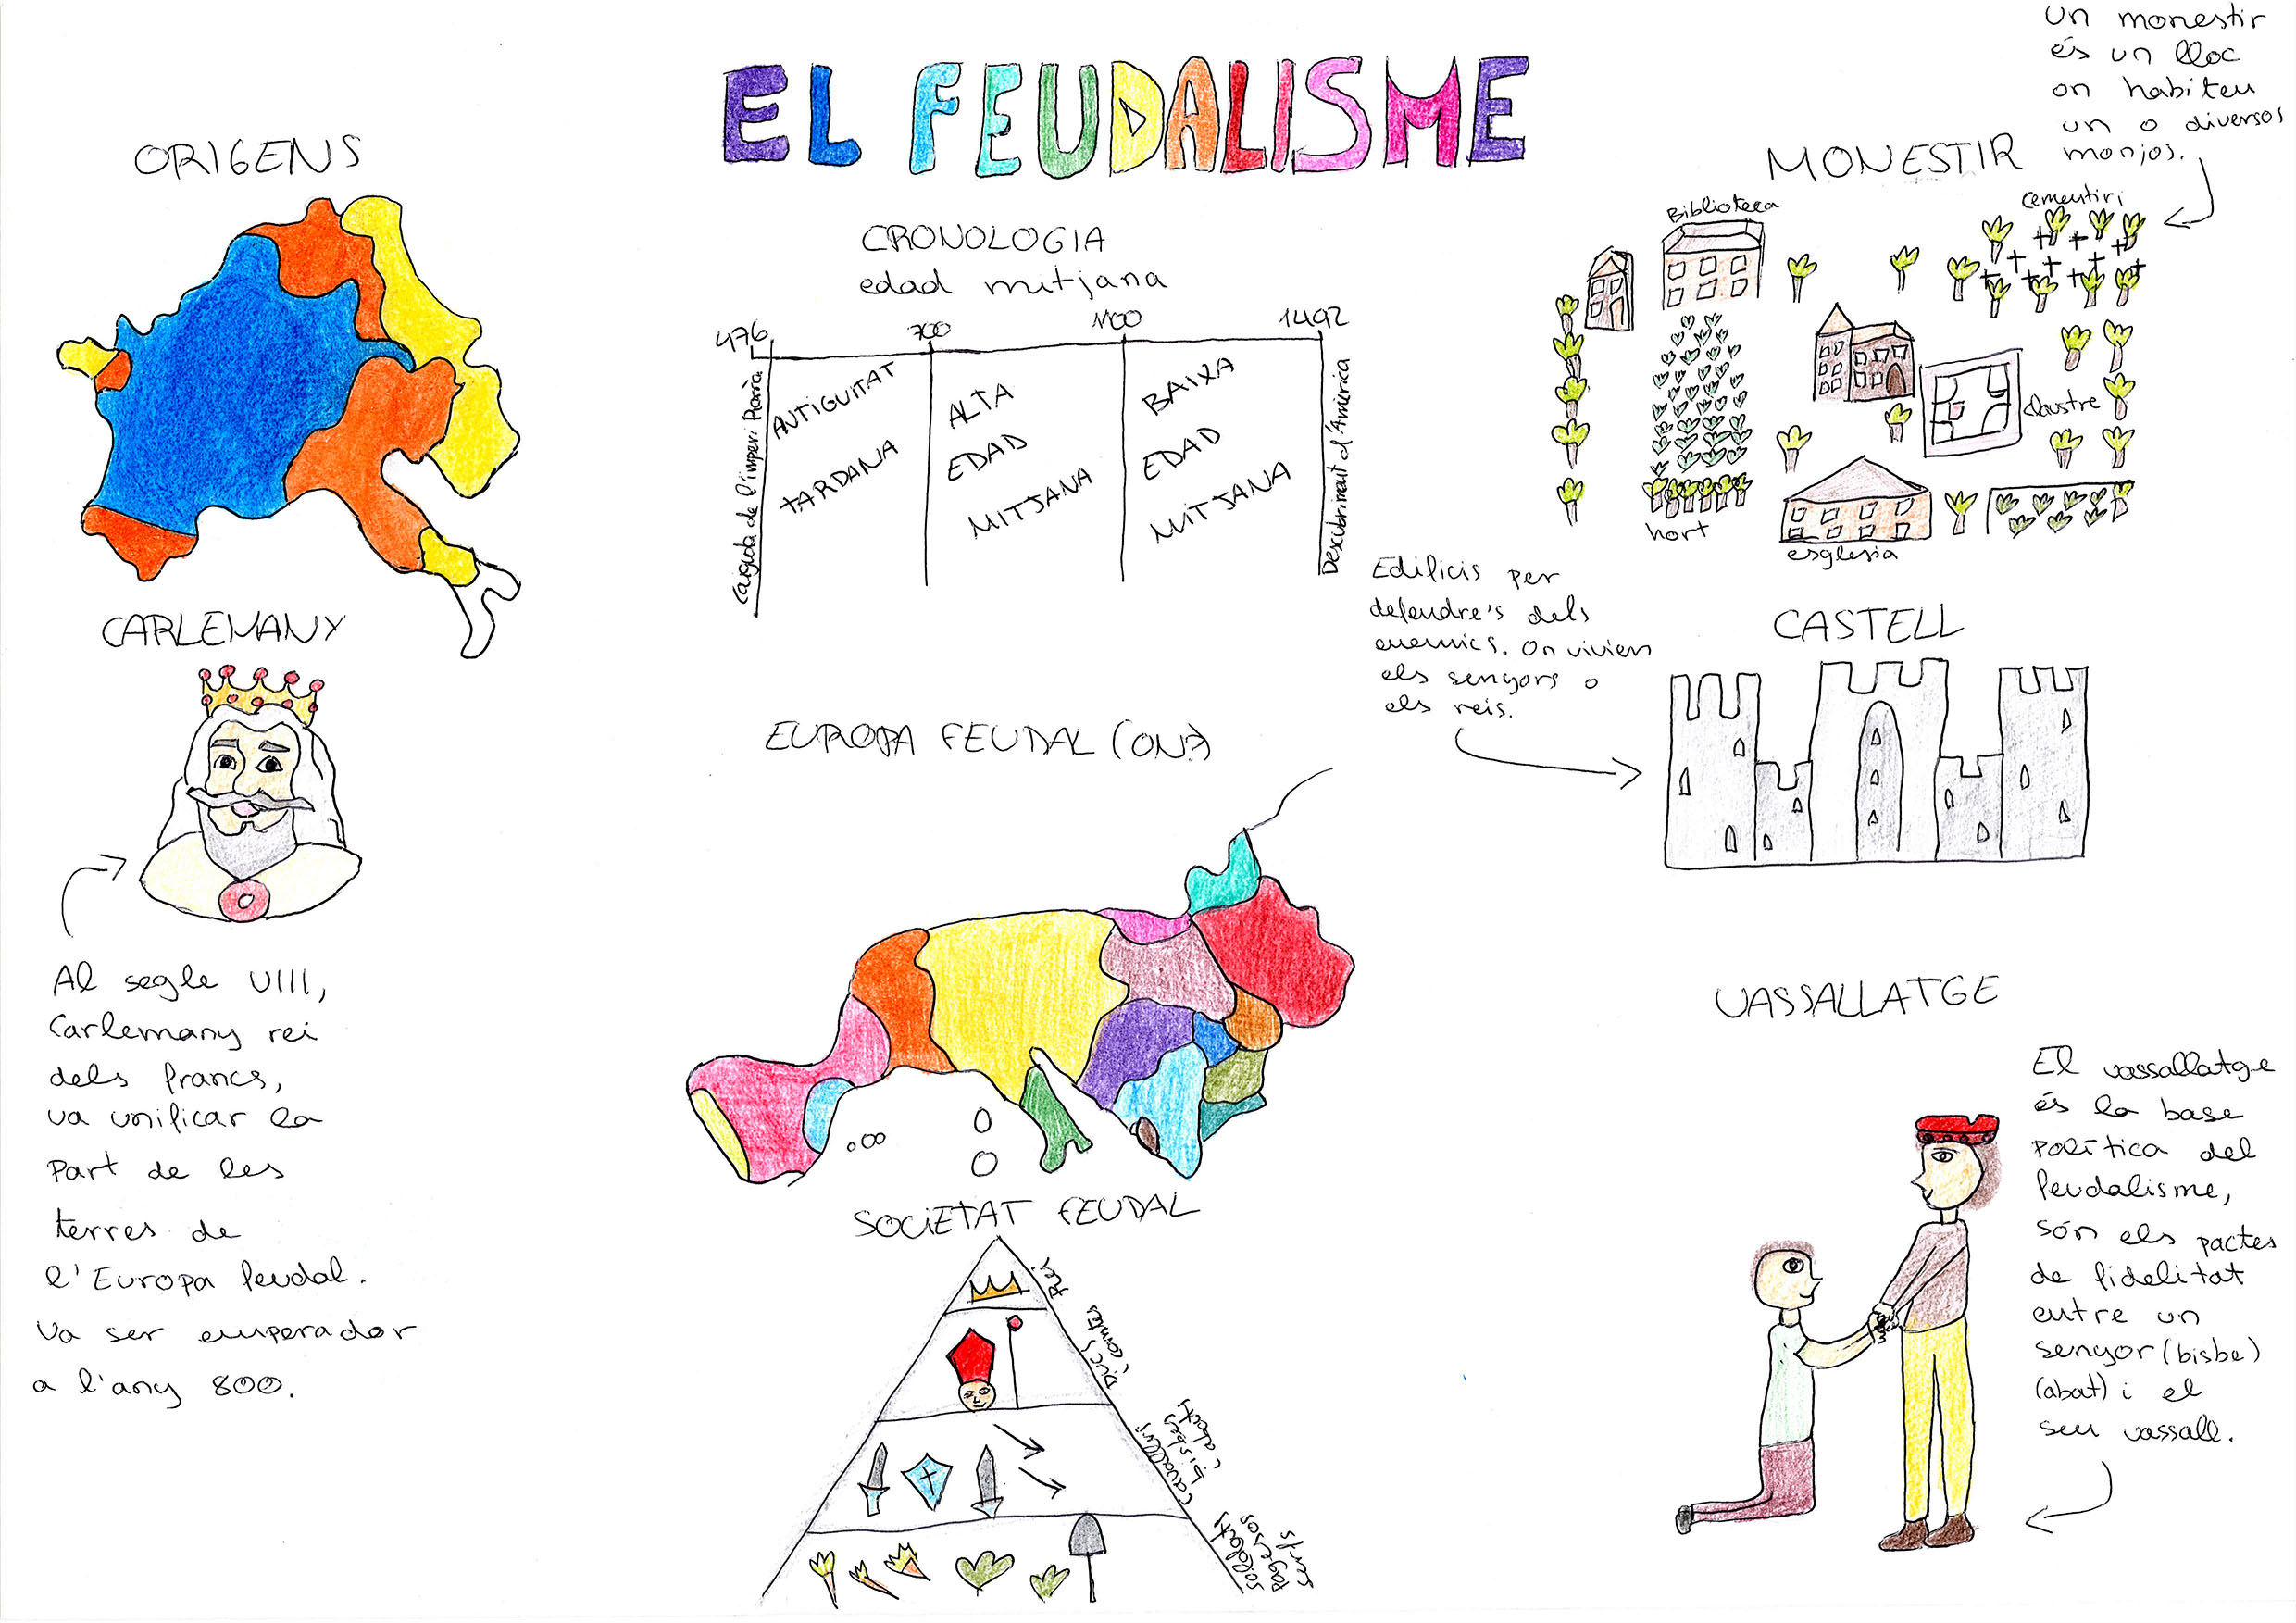 EL FEUDALISME
ORIGENS
CARLEMANY
Al segle VIII,
Carlemany rei
dels francs,
va unificar la
part de les
terres de
l'Europa feudal.
Va ser emperador
a l'any 800.
CRONOLOGIA
edad mitjana
476
700
1100
1492
Caiguda de l'imperi Romà
ANTIGUITAT
TARDANA
ALTA
EDAD
MITJANA
BAIXA
EDAD
MITJANA
Descubriment d'Amèrica
EUROPA FEUDAL (ON?)
SOCIETAT FEUDAL
Rei
Ducs
i comtes
Cavallers
bisbes
i abats
soldats
Pagesos
serfs
MONESTIR
Un monestir
és un lloc
on habiten
un o diversos
monjos.
Biblioteca
cementiri
claustre
hort
esglesia
CASTELL
Edificis per
defendre's dels
enemics. On vivien
els senyors o
els reis.
VASSALLATGE
El vassallatge
és la base
política del
feudalisme,
són els pactes
de fidelitat
entre un
senyor (bisbe)
(abat) i el
seu vassall.